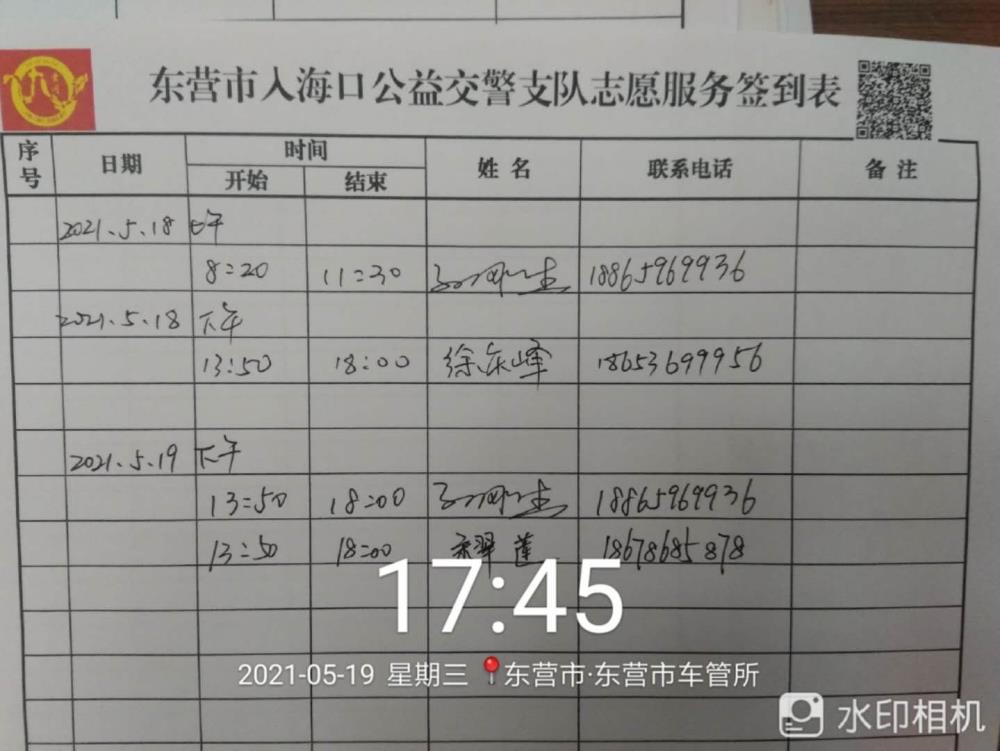 东营市入海口公益交警支队志愿服务签到表
序号 日期 时间 姓名 联系电话 备注
开始 结束
2021.5.18 上午
8:20 11:30 18865969936
2021.5.18 下午
13:50 18:00 徐东峰 18653699956
2021.5.19 下午
13:50 18:00 18865969936
13:50 18:00 莲 18678685878
17:45
2021-05-19 星期三 东营市·东营市车管所
水印相机